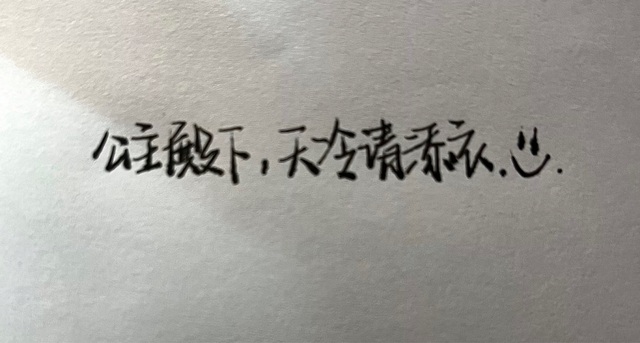 公主殿下,天冷请添衣.